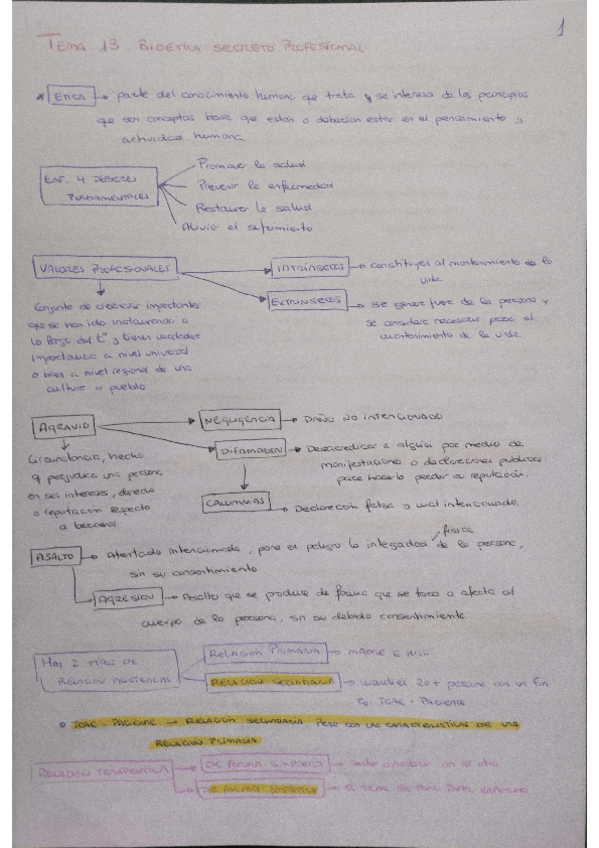 1
TEMA 13. BIOETICA SECRETO PROFESIONAL
* ETICA → parte del conocimiento humano que trata y se interesa de los principios
que son conceptos base que están o deberían estar en el pensamiento y
actividad humana
ENF. 4 DEBERES
FUNDAMENTALES
Promover la salud
Prevenir la enfermedad
Restaurar la salud
Aliviar el sufrimiento
VALORES PROFESIONALES
INTRINSECOS → constituyen al mantenimiento de la
vida
EXTRINSECOS → se genera fuera de la persona y
se considera necesario para el
mantenimiento de la vida
Conjunto de creencias importantes
que se han ido instaurando a
lo largo del tº y tienen verdadera
importancia a nivel universal
o bien a nivel regional de una
cultura o pueblo
AGRAVIO
NEGLIGENCIA → DAÑO NO INTENCIONADO
DIFAMACION → Desacreditar a alguien por medio de
manifestaciones o declaraciones publicas
para hacerlo perder su reputación.
CALUMNIAS → Declaración falsa o mal intencionada
Circunstancia, hecho
q perjudica una persona,
en sus intereses, derecho
o reputación respecto
a terceros
ASALTO → Atentado intencionado, pone en peligro la integridad física de la persona,
sin su consentimiento
AGRESION → Asalto que se produce de forma que se toca o afecta al
cuerpo de la persona, sin su debido consentimiento
HAY 2 TIPOS DE
RELACION ASISTENCIAL
RELACION PRIMARIA → MADRE E HIJO
RELACION SECUNDARIA → cualquier 20+ persona con un fin
Ej. TCAE - PACIENTE
TCAE - PACIENTE → RELACION SECUNDARIA, PERO CON LAS CARACTERISTICAS DE UNA
RELACION PRIMARIA
RELACION TERAPEUTICA
DE FORMA SIMPATICA → con el otro
DE FORMA EMPATICA →